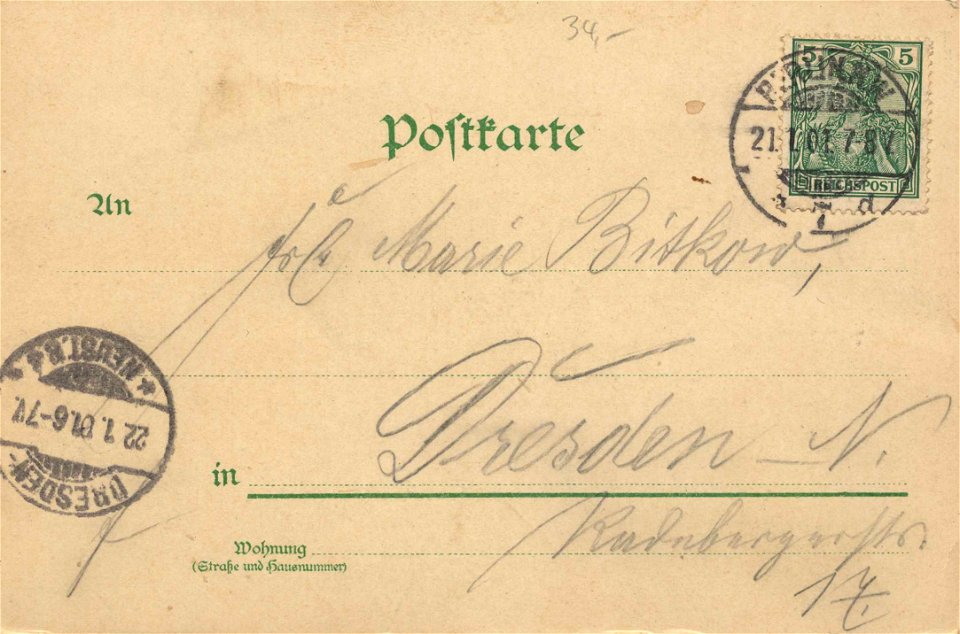 34,-
5 5
BERLIN N.W.
21.1.01. 7-8V.
REICHSPOST
* 7 d
Postkarte
An
Frl. Marie Bitkow,
* NEUST. 8 d *
22.1.01. 6-7V.
DRESDEN-
in Dresden N.
Wohnung Radebergerstr.
(Straße und Hausnummer)
17.